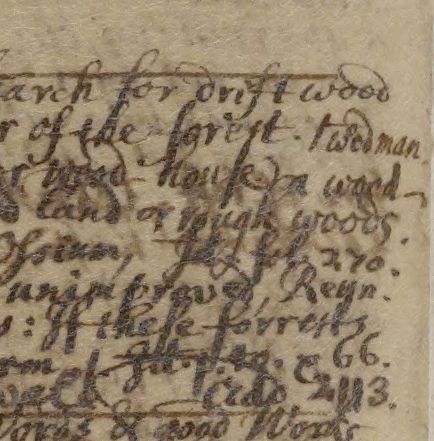 arch for drift wood
r of the forest. twedman
or wood house, a wood
d land or rough woods.
fol. 270.
unimproved, Reyn.
: If these forrests
66.
Cad 2113.
Words & good Works